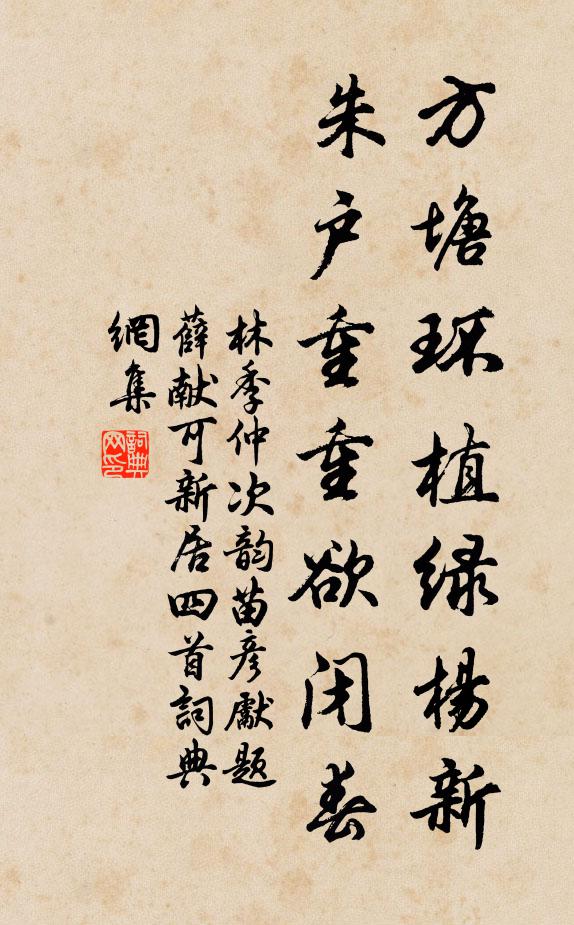 方塘环植绿楊新
朱户重重欲闭春
林季仲次韵苗彦獻题
薛献可新居四首詞典
網集
詞典
网印